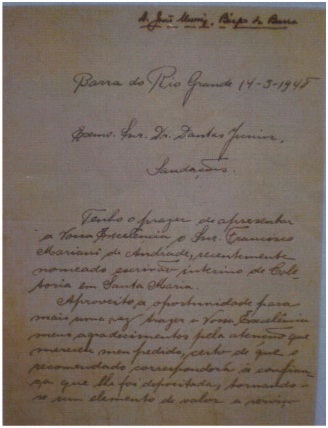 D. João Muniz, Bispo da Barra
Barra do Rio Grande 14-3-1948
Exmo. Snr. Dr. Dantas Junior,
Saudações.
Tenho o prazer de apresentar
a Vossa Excelência o Snr. Francisco
Mariani de Andrade, recentemente
nomeado escrivão interino de Cole
toria em Santa Maria.
Aproveito a oportunidade para
mais uma vez trazer a Vossa Excelência
meus agradecimentos pela atenção que
mereceu meu pedido, certo de que o
recomendado corresponderá à confian
ça que lhe foi depositada, tornando-
se um elemento de valor a serviço